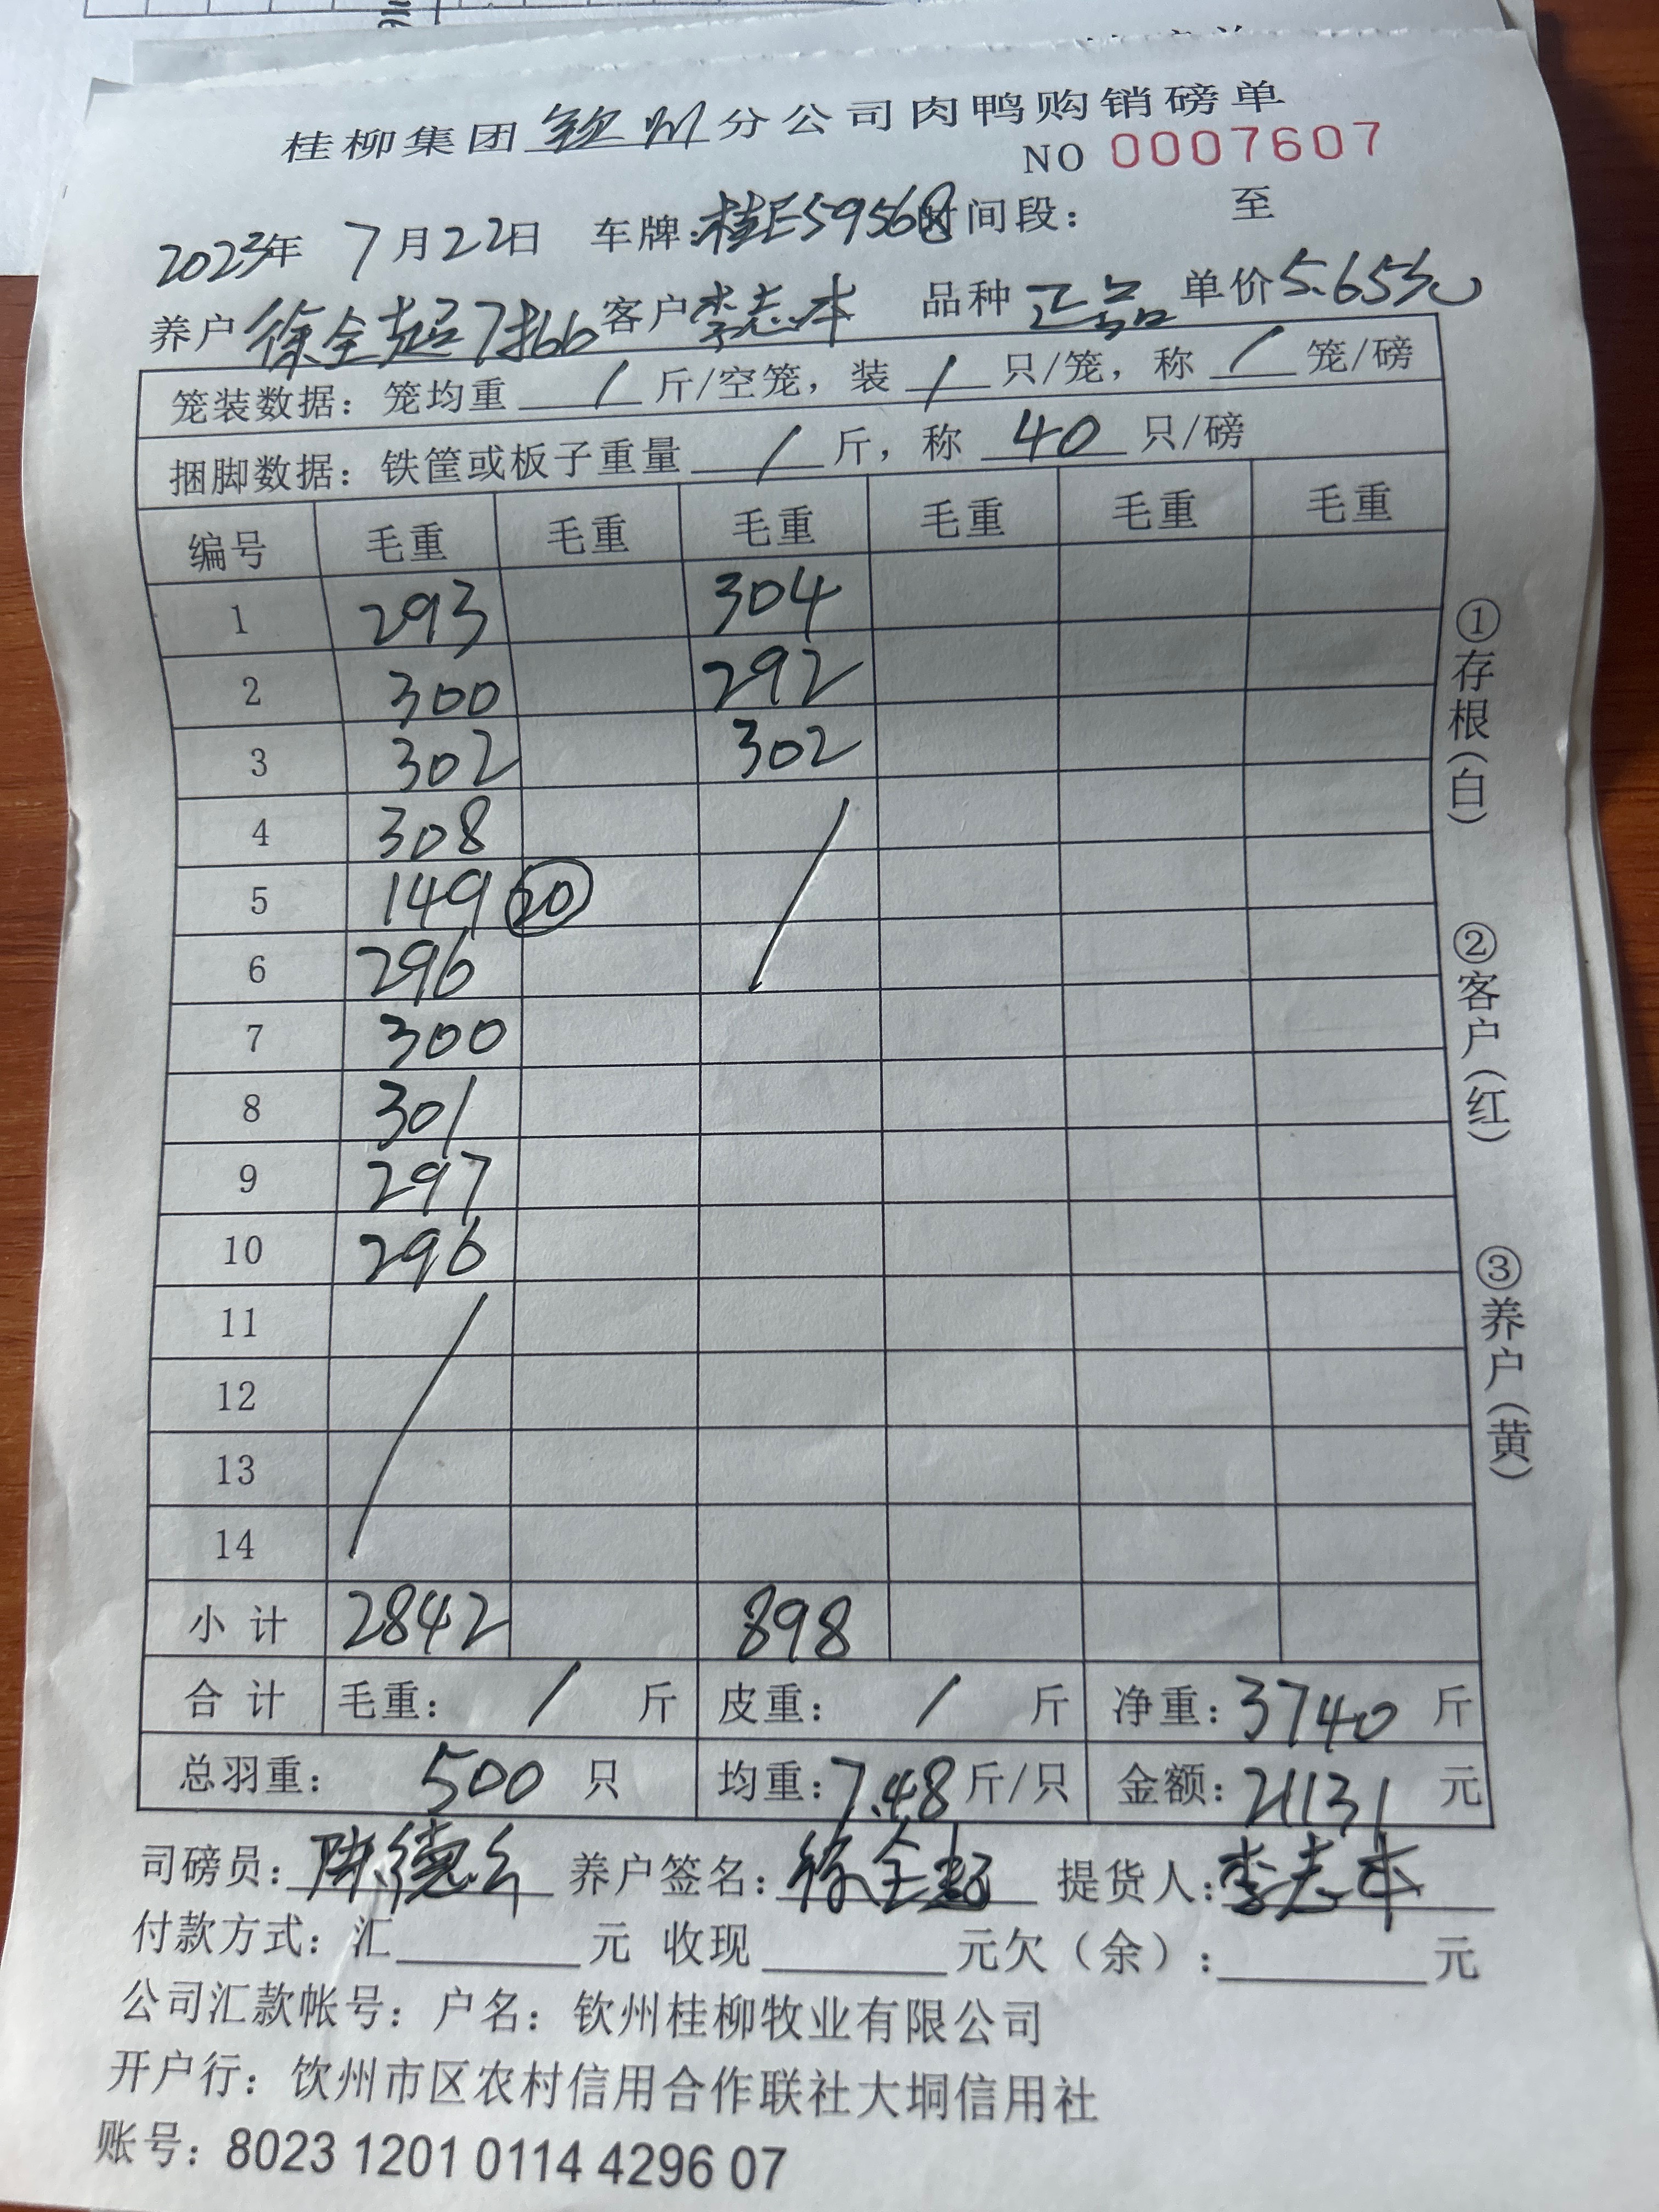 桂柳集团钦州分公司肉鸭购销磅单
NO 0007607
2023年 7月22日 车牌:桂E59568 时间段: 至
养户 徐全超7批66 客户 李志本 品种 正品 单价5.65元
笼装数据: 笼均重 / 斤/空笼, 装 / 只/笼, 称 / 笼/磅
捆脚数据: 铁筐或板子重量 / 斤, 称 40 只/磅
编号 毛重 毛重 毛重 毛重 毛重 毛重
1 293 304
2 300 292
3 302 302
4 308
5 149 20
6 296
7 300
8 301
9 297
10 296
11
12
13
14
小 计 2842 898
合 计 毛重: / 斤 皮重: / 斤 净重: 3740 斤
总羽重: 500 只 均重: 7.48 斤/只 金额: 21131 元
司磅员: 陈德 养户签名: 徐全超 提货人: 李志本
付款方式: 汇 元 收现 元欠(余): 元
公司汇款帐号: 户名: 钦州桂柳牧业有限公司
开户行: 饮州市区农村信用合作联社大垌信用社
账号: 8023 1201 0114 4296 07
①存根(白)
②客户(红)
③养户(黄)